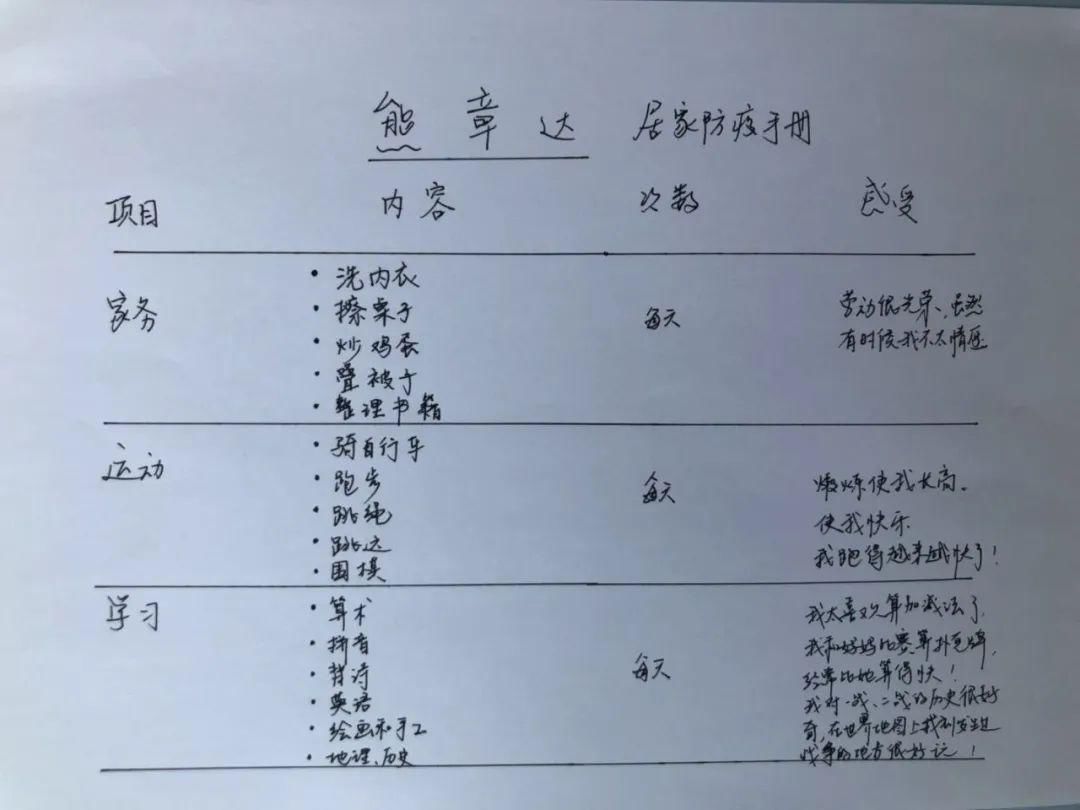 熊章达 居家防疫手册
项目 内容 次数 感受
家务
• 洗内衣
• 擦桌子
• 炒鸡蛋
• 叠被子
• 整理书籍
每天
劳动很光荣、虽然
有时候我不太情愿
运动
• 骑自行车
• 跑步
• 跳绳
• 跳远
• 围棋
每天
锻炼使我长高、
使我快乐
我跑得越来越快了！
学习
• 算术
• 拼音
• 背诗
• 英语
• 绘画和手工
• 地理、历史
每天
我太喜欢算加减法了，
我和妈妈比赛算扑克牌，
经常比她算得快！
我对一战、二战的历史很好
奇，在世界地图上找到发生过
战争的地方很好玩！